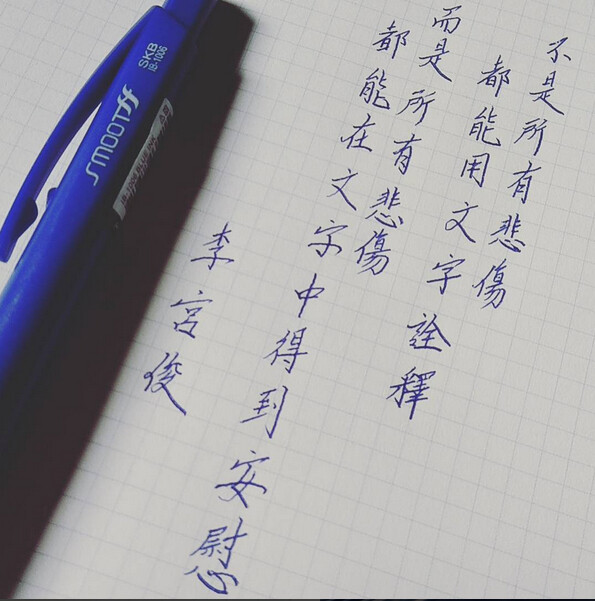 不是所有悲傷
都能用文字詮釋
而是所有悲傷
都能在文字中得到安慰
李宮俊
SKB
IB-1006
SMOOTff